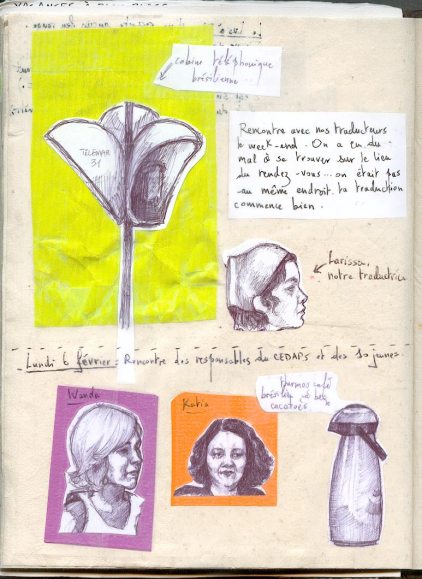 cabine téléphonique
brésilienne...
TELEMAR
31
Rencontre avec nos traducteurs
le week-end. On a eu du
mal à se trouver sur le lieu
du rendez-vous... on était pas
au même endroit. La traduction
commence bien.
Larissa,
notre traductrice
Lundi 6 février : Rencontre des responsables du CEDAPS et des 10 jeunes.
Wanda
Katia
thermos café
brésilien
cacatoès